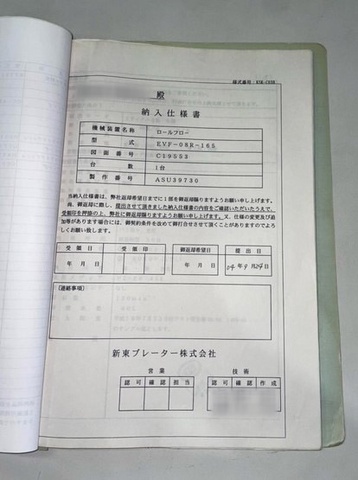 殿
納入仕様書
機械装置名称 ロールブロー
型式 EVF-08R-165
図面番号 C19553
台数 1台
製作番号 ASU39730
本納入仕様書は、弊社返却希望日までに1部を御返却賜りますようお願い申し上げます。
尚、御返却に際し、提出させて頂きました納入仕様書の内容をご確認いただいたうえで、
受領印を押捺の上、弊社に御返却賜りますようお願い申し上げます。又、仕様の変更及び追
加等があります場合には、御契約条件を含めて御打合せさせて頂くことがありますのでよろ
しくお願い致します。
受領日 受領印 御返却希望日 提出日
年 月 日 年 月 日 04年9月24日
【連絡事項】
新東ブレーター株式会社
営業 技術
認可 確認 担当 認可 確認 作成